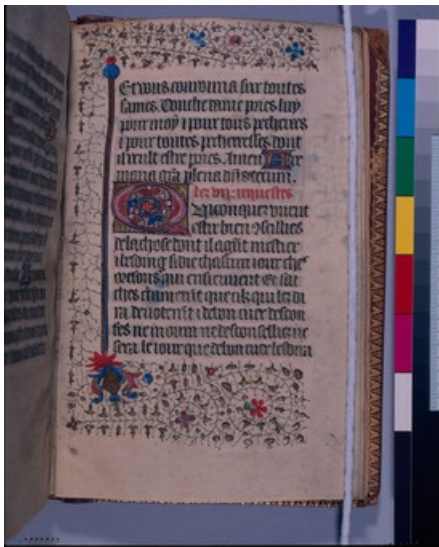 Et vous couronna sur toutes
fames. Douche dame pries luy
pour moy ⁊ pour tous pecheurs
⁊ pour toutes pecheresses dont
il veult estre pries. Amen. Aue
maria gra plena dns tecum.
Les vii. requestes
Quiconques veult
estre bien
de la chose dont il a grant mestier
⁊ besoing si die chascun iour ches
oresons qui ensieuent. Et sa
ches que cilz qui les di
ra deuotemt ⁊ de bon cuer de son
fes ne morra ne desconseillies ne
sera le iour que de bon cuer les dira